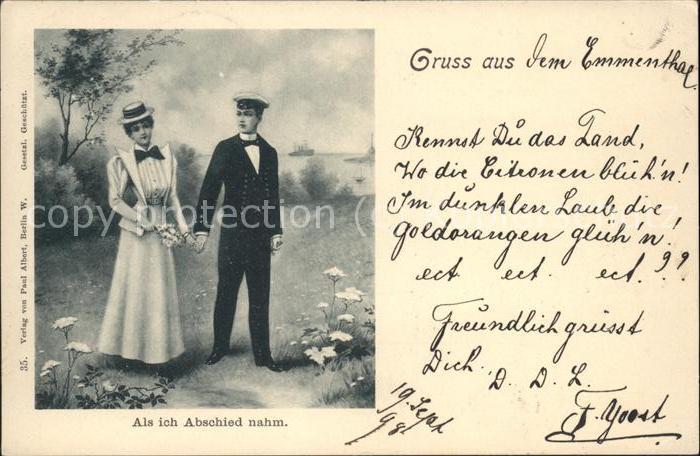 Gruss aus dem Emmenthal.
Kennst Du das Land,
Wo die Citronen blüh'n!
Im dunklen Laube die
Goldorangen glüh'n!
ect. ect. ect.??
Freundlich grüsst
Dich.
D. D. L.
F. Yoost
19. Sept
98.
Als ich Abschied nahm.
35. Verlag von Paul Albert, Berlin W. Gesetzl. Geschützt.
copyright oldthing.de